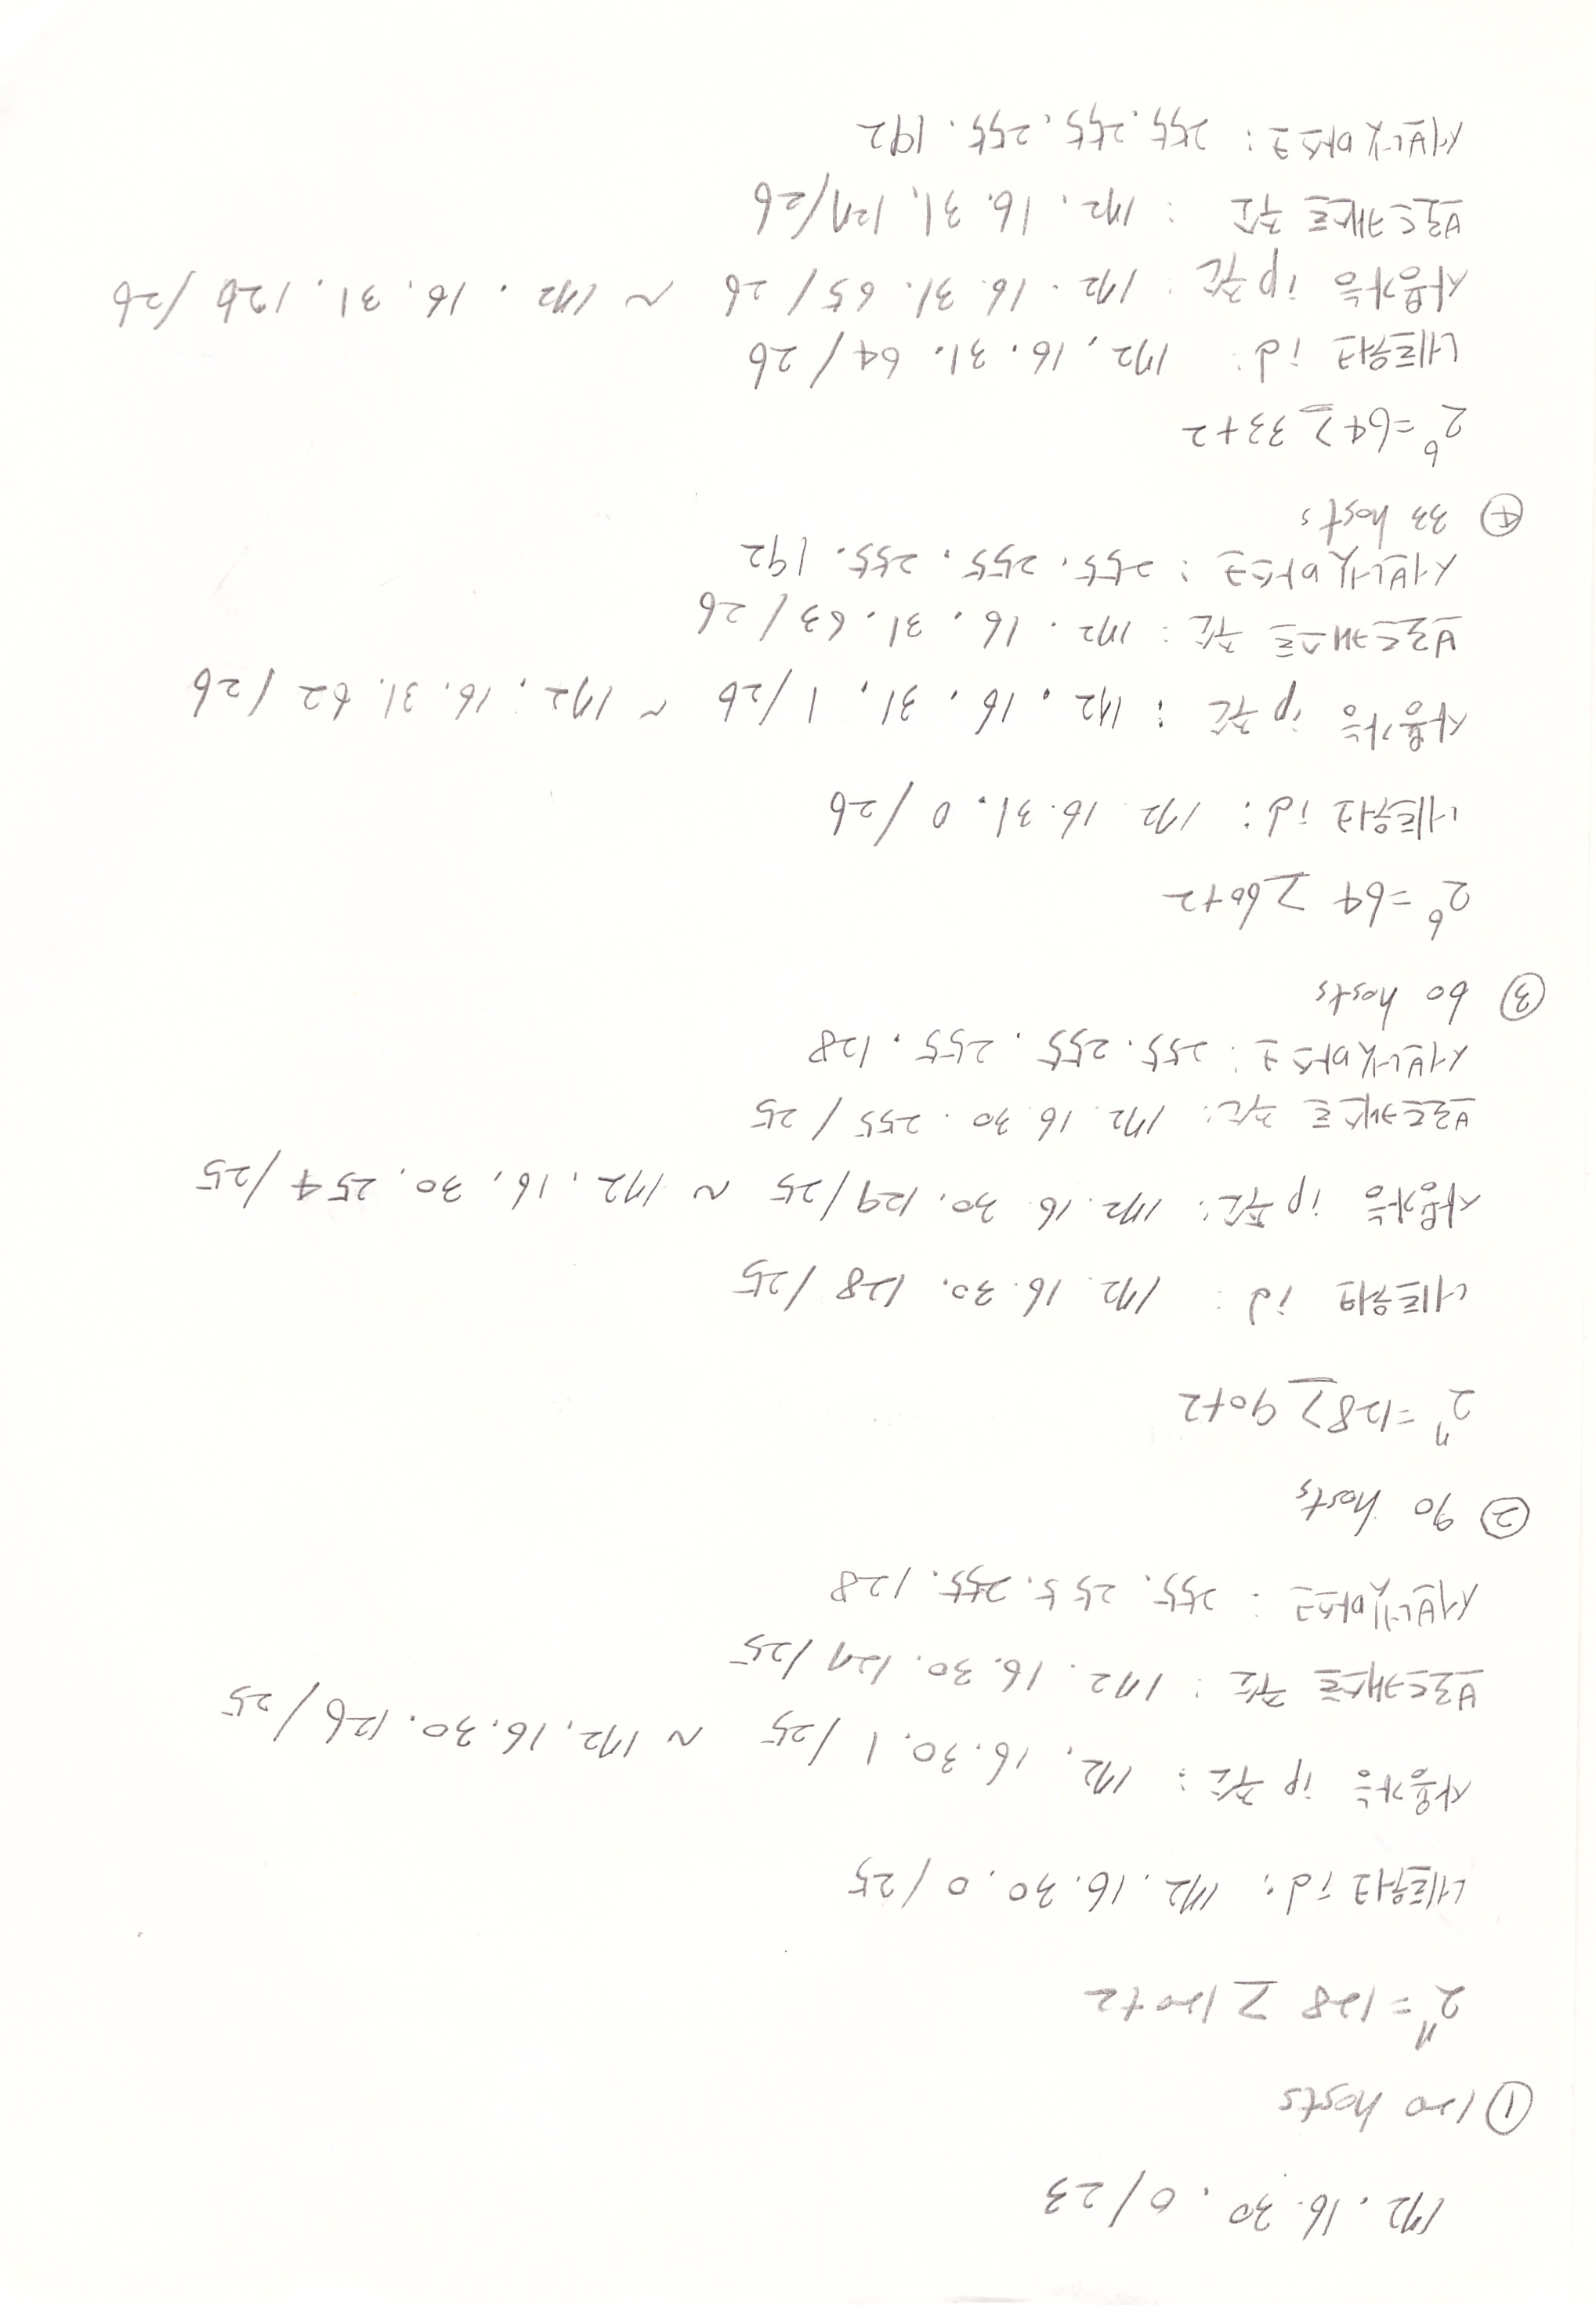 172.16.30.0/23
① 120 hosts
2^7=128 ≥ 120+2
네트워크 id: 172.16.30.0/25
사용가능 ip 주소: 172.16.30.1/25 ~ 172.16.30.126/25
브로드캐스트 주소: 172.16.30.127/25
서브넷마스크: 255.255.255.128
② 90 hosts
2^7=128 ≥ 90+2
네트워크 id: 172.16.30.128/25
사용가능 ip 주소: 172.16.30.129/25 ~ 172.16.30.254/25
브로드캐스트 주소: 172.16.30.255/25
서브넷마스크: 255.255.255.128
③ 60 hosts
2^6=64 ≥ 60+2
네트워크 id: 172.16.31.0/26
사용가능 ip 주소: 172.16.31.1/26 ~ 172.16.31.62/26
브로드캐스트 주소: 172.16.31.63/26
서브넷마스크: 255.255.255.192
④ 33 hosts
2^6=64 ≥ 33+2
네트워크 id: 172.16.31.64/26
사용가능 ip 주소: 172.16.31.65/26 ~ 172.16.31.126/26
브로드캐스트 주소: 172.16.31.127/26
서브넷마스크: 255.255.255.192